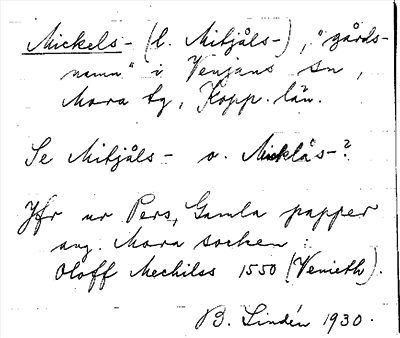 Mickels- (l. Mitjåls-), "gårds-
namn" i Venjans sn,
Mora tg, Kopp. län.
Se Mitjåls- o. Micklås-?
Jfr ur Pers, Gamla papper
ang. Mora socken:
Oloff Mechilss 1550 (Venieth).
B. Lindén 1930.